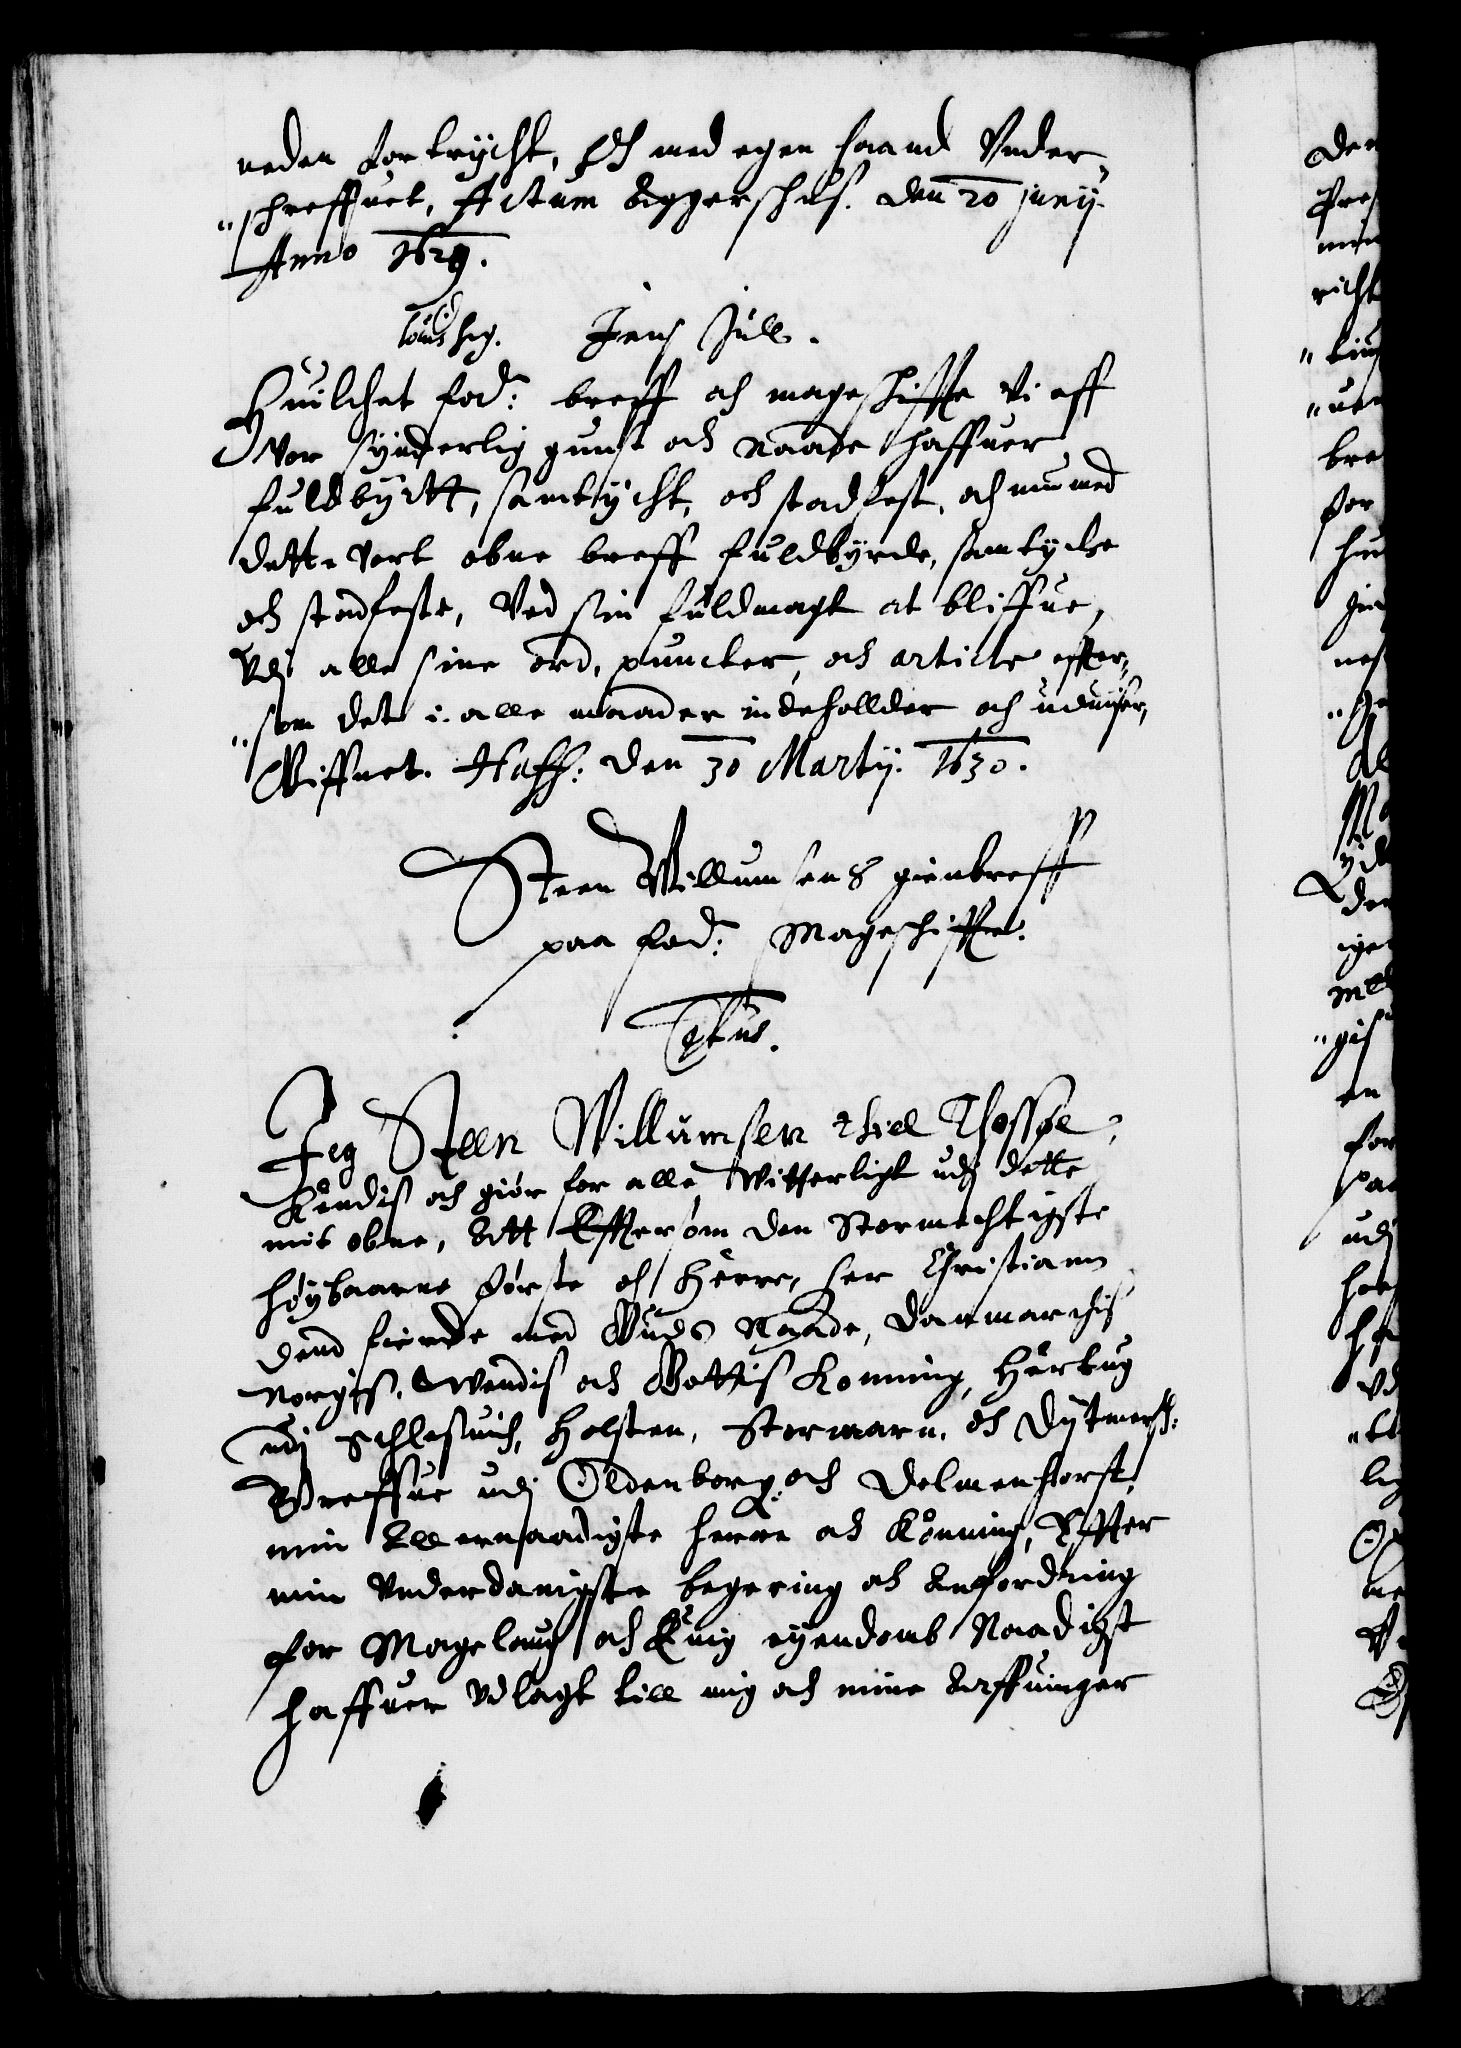 neden for trycht, Och med egen haand Vnder
"schreffuet, Actum Aggershus. den 20 junij.
Anno 1629.
Locus Sig. Jens Jull.
Huilchet for.ne breff och mageschiffte Vi aff
Vor synderlig gunst och Naade haffuer
fuldbyrtt, samtycht, och stadfest, och nu med
dette Vort obne breff fuldbyrde, samtyche
och stadfeste, Ved sin fuldmagt at bliffue,
Vdj alle sine ord, puncter, och article effter,
"som det i alle maader indehollder och uduiser,
Giffuet. Haff: den 30 Martij. 1630.
Steen Willumsens gienbreff
paa for.ne Mageschiffte.
Jeg Steen Willumsen thill
Kiendis och giør for alle Witterligt udj dette
mit obne, Att Efftersom den Stormechtigste
høybaarne første och Herre, her Christiann
dend fierde med Guds Naade, Danmarchis
Norgis, Wendis och Gottis Konning, Hertug
udj Schlesuich, Holsten, Stormarn, och Dytmersch:
Greffue udj Oldenborg, och Delmenhorst,
min Allernaadigste herre och Konning, Effter
min Vnderdanigste begering och Anfordring
for Magelaug och Euig eyendomb Naadigst
haffuer Vdlagt till mig och mine Arffuinger